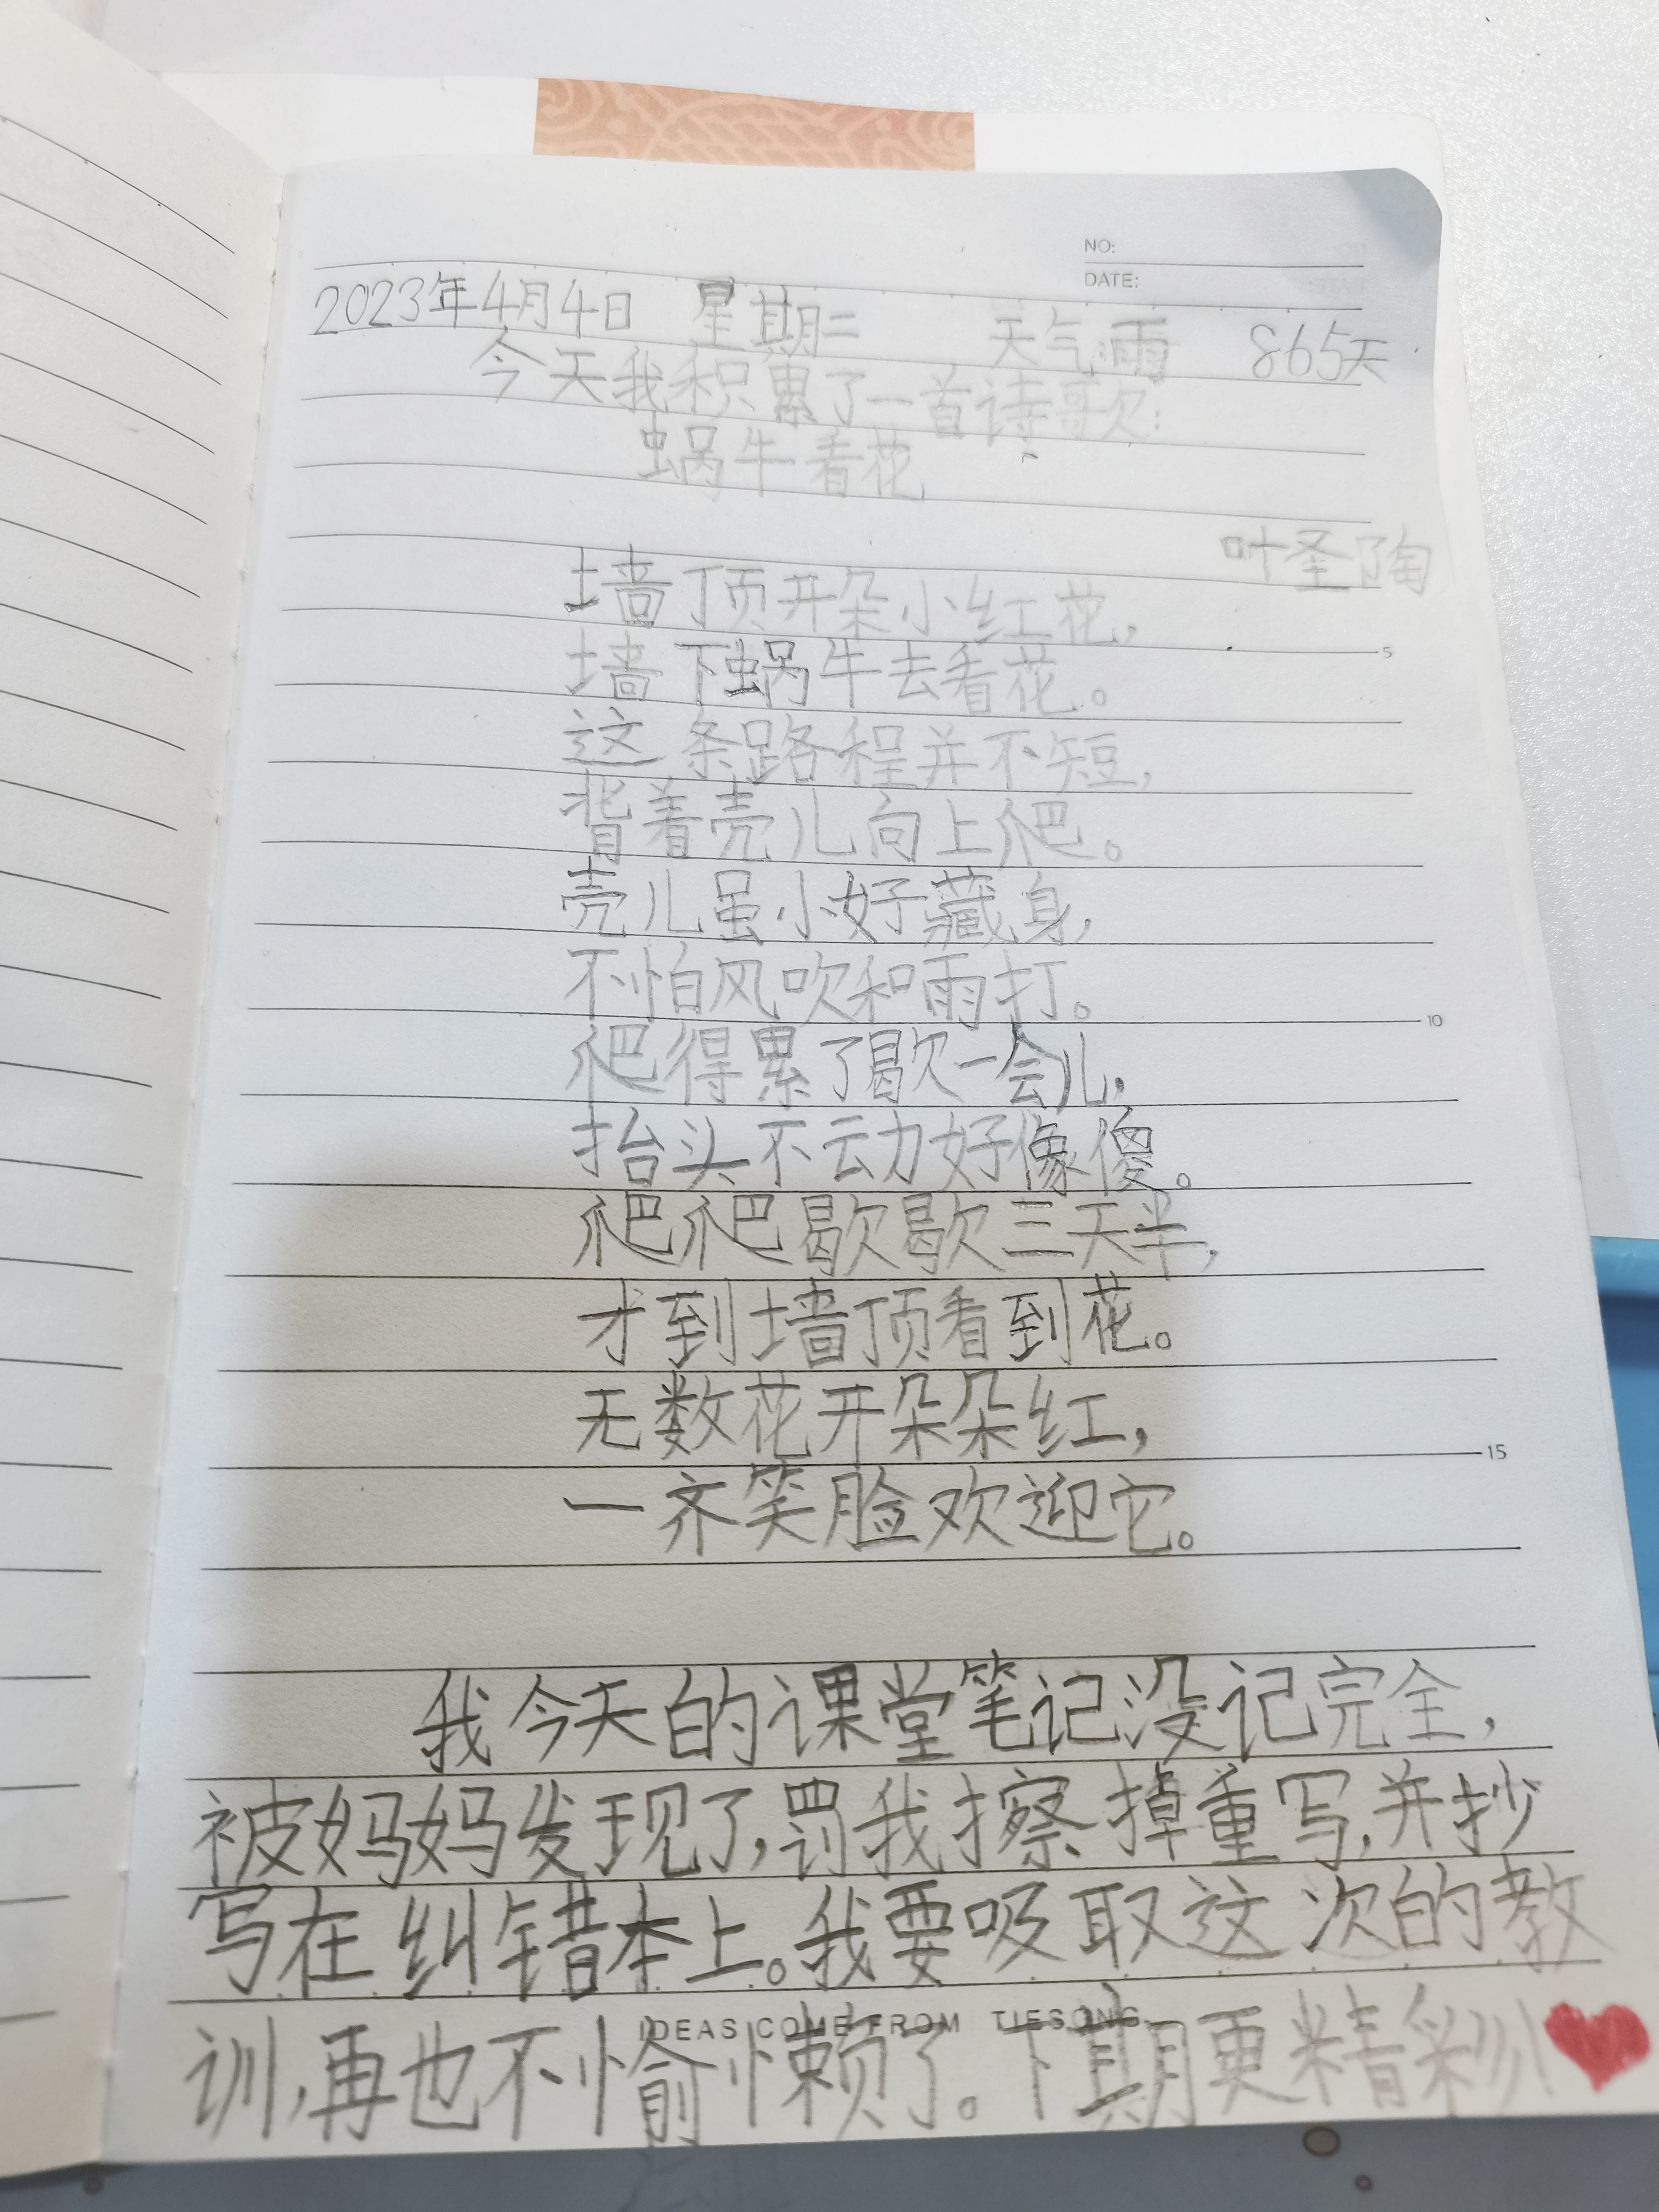 NO:
DATE:
2023年4月4日 星期二 天气:雨 865天
今天我积累了一首诗歌:
蜗牛看花
叶圣陶
墙顶开朵小红花,
墙下蜗牛去看花。
5
这条路程并不短,
背着壳儿向上爬。
壳儿虽小好藏身,
不怕风吹和雨打。
10
爬得累了歇一会儿,
抬头不动好像傻。
爬爬歇歇三天半,
才到墙顶看到花。
无数花开朵朵红,
15
一齐笑脸欢迎它。
我今天的课堂笔记没记完全,
被妈妈发现了,罚我擦掉重写,并抄
写在纠错本上。我要吸取这次的教
训,再也不愉懒了。下期更精彩!
IDEAS COME FROM TIESONG